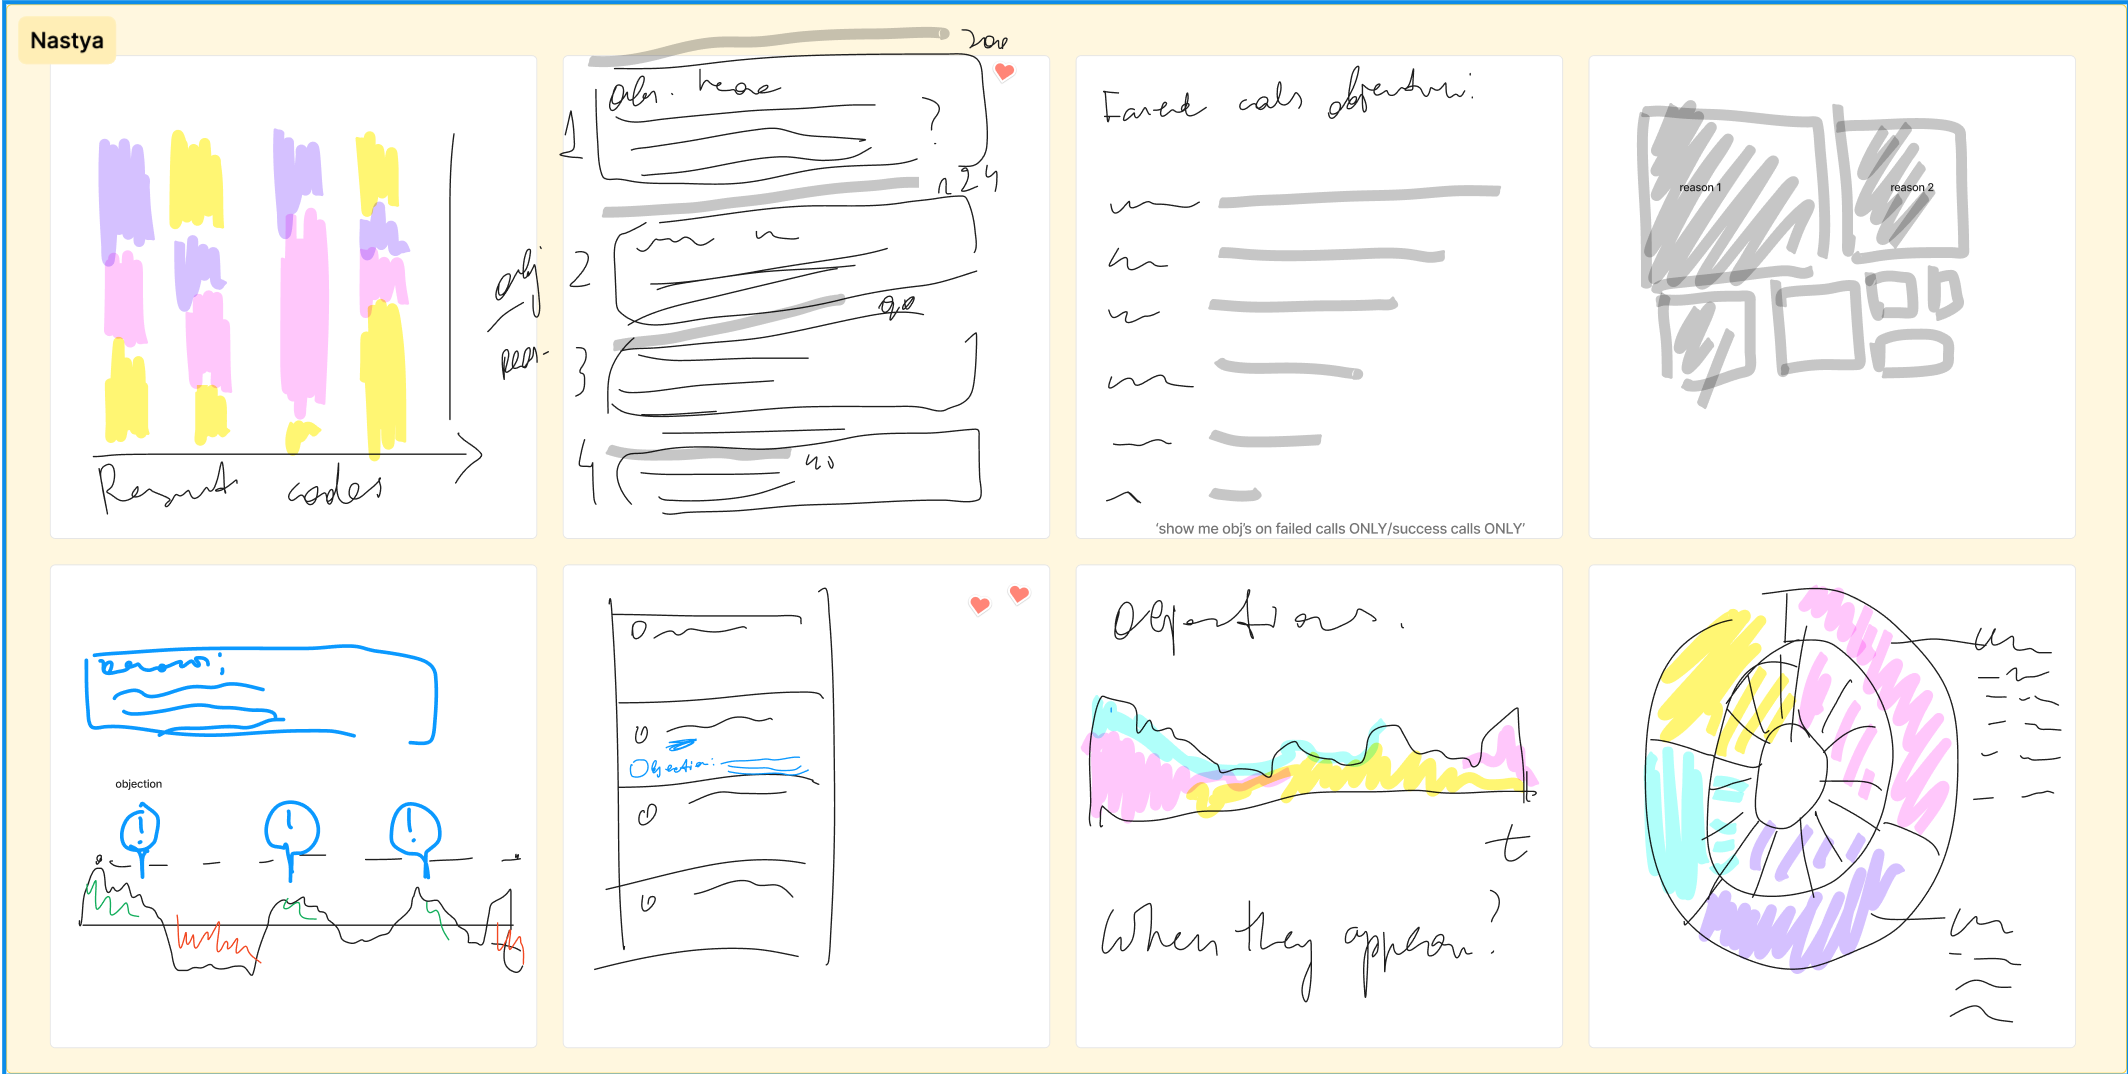 Nastya
Result codes
obj
1
?
2
3
4
40
Failed calls objections:
'show me obj's on failed calls ONLY/success calls ONLY'
reason 1
reason 2
objection
!
!
!
Objection:
Objections.
t
When they appear?